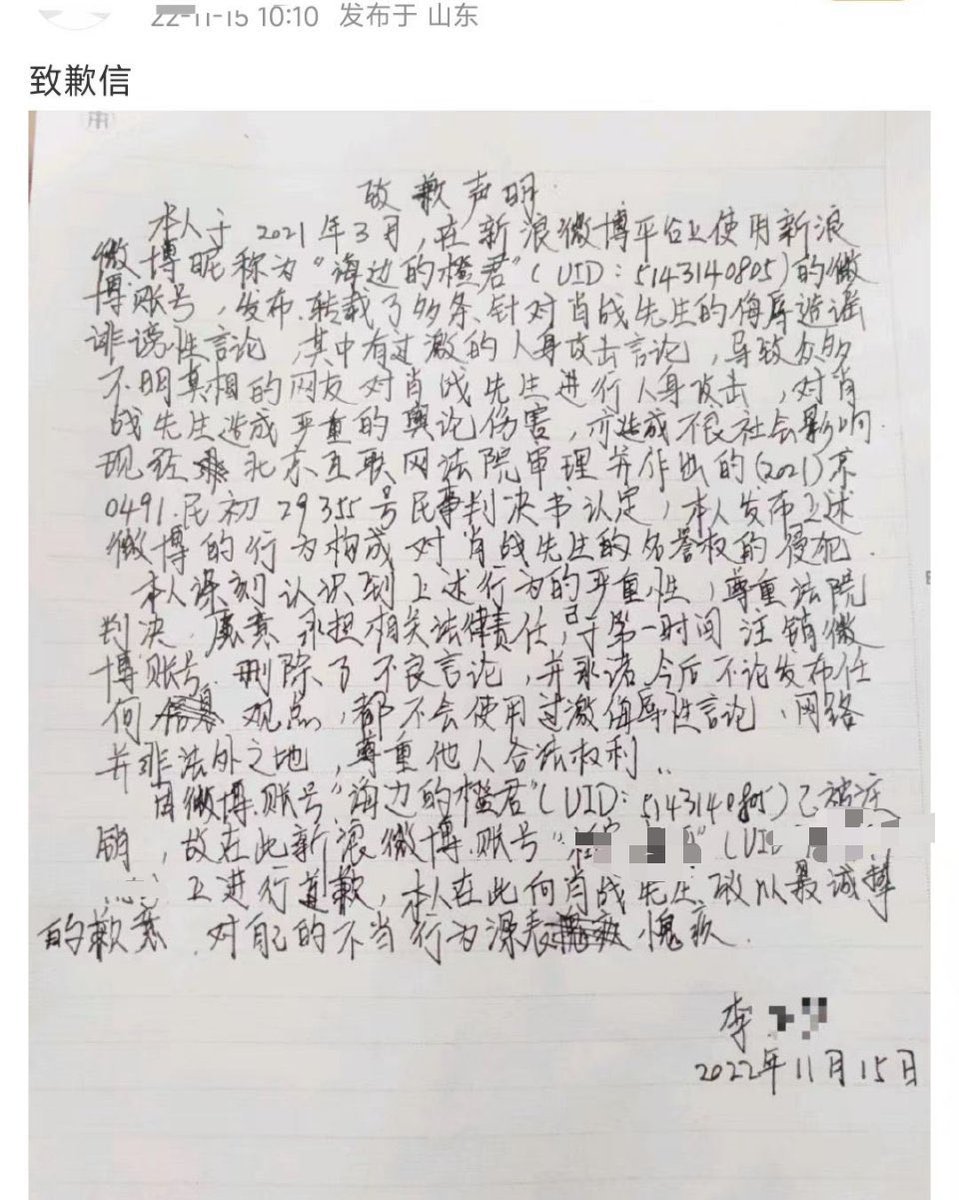 22-11-15 10:10 发布于 山东
致歉信
致歉声明
本人于2021年3月，在新浪微博平台上使用新浪
微博昵称为“海边的橙君”(UID:5143140805)的微
博账号，发布、转载了多条、针对肖战先生的侮辱造谣
诽谤性言论，其中有过激的人身攻击言论，导致众多
不明真相的网友对肖战先生进行人身攻击，对肖
战先生造成严重的舆论伤害，亦造成不良社会影响.
现经北京互联网法院审理并作出的(2021)京
0491.民初29355号民事判决书认定，本人发布上述
微博的行为构成对肖战先生的名誉权的侵犯.
本人深刻认识到上述行为的严重性，尊重法院
判决.愿意承担相关法律责任，已于第一时间注销微
博账号.删除了不良言论，并承诺今后不论发布任
何观点，都不会使用过激侮辱性言论、网络
并非法外之地，尊重他人合法权利..
因微博.账号“海边的橙君”(UID:5143140805)已被注
销，故在此新浪微博.账号“ ”(UID
上进行道歉，本人在此向肖战先生致以最诚挚
的歉意.对自己的不当行为深表愧疚.
李
2022年11月15日